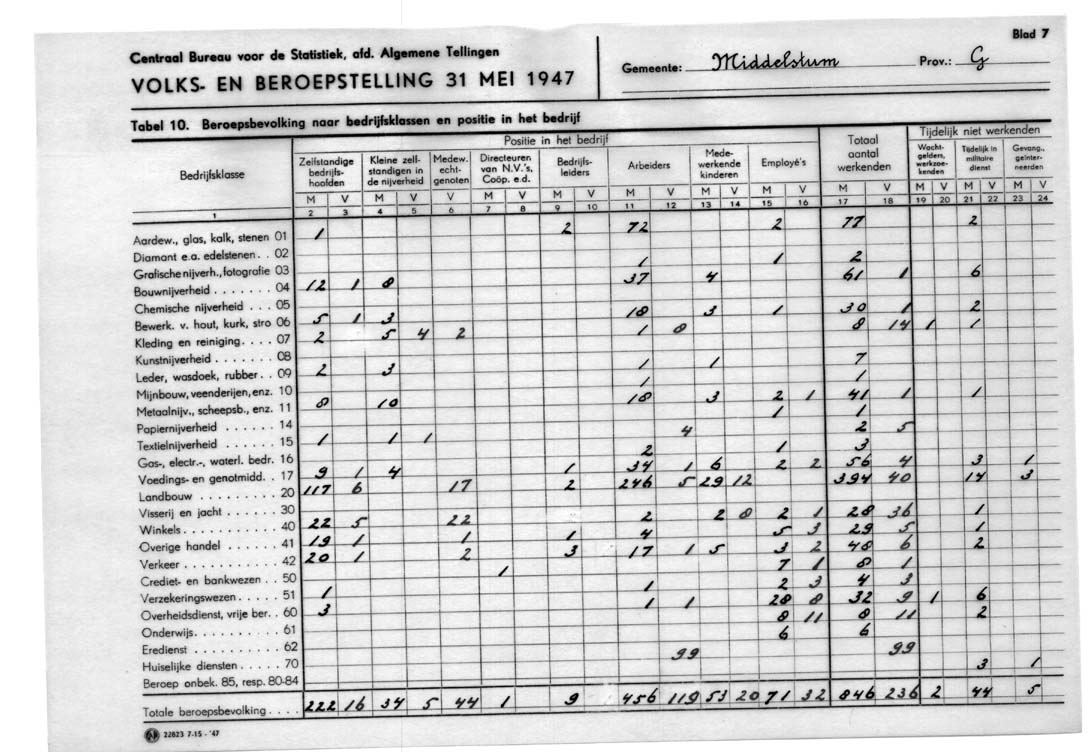 Blad 7
Centraal Bureau voor de Statistiek, afd. Algemene Tellingen
VOLKS- EN BEROEPSTELLING 31 MEI 1947
Gemeente: Middelstum Prov.: G
Tabel 10. Beroepsbevolking naar bedrijfsklassen en positie in het bedrijf
Bedrijfsklasse
Positie in het bedrijf
Zelfstandige
bedrijfs-
hoofden
Kleine zelf-
standigen in
de nijverheid
Medew.
echt-
genoten
Directeuren
van N.V.'s,
Coöp. e.d.
Bedrijfs-
leiders
Arbeiders
Mede-
werkende
kinderen
Employé's
Totaal
aantal
werkenden
Tijdelijk niet werkenden
Wacht-
gelders,
werkzoe-
kenden
Tijdelijk in
militaire
dienst
Gevang.,
geïnter-
neerden
M V M V V M V M V M V M V M V M V M V M V M V
1 2 3 4 5 6 7 8 9 10 11 12 13 14 15 16 17 18 19 20 21 22 23 24
Aardew., glas, kalk, stenen 01 1 2 72 2 77 2
Diamant e.a. edelstenen . . 02
Grafische nijverh., fotografie 03 1 1 2
Bouwnijverheid . . . . . . . 04 12 1 8 37 4 61 1 6
Chemische nijverheid . . . 05
Bewerk. v. hout, kurk, stro 06 5 1 3 18 3 1 30 1 2
Kleding en reiniging. . . . 07 2 5 4 2 1 8 8 14 1 1
Kunstnijverheid . . . . . . . 08
Leder, wasdoek, rubber. . 09 2 3 1 1 7
Mijnbouw, veenderijen, enz. 10 1 1
Metaalnijv., scheepsb., enz. 11 8 10 18 3 2 1 41 1 1
Papiernijverheid . . . . . . 14 1 1
Textielnijverheid . . . . . . 15 1 1 1 4 2 5
Gas-, electr.-, waterl. bedr. 16 2 1 3
Voedings- en genotmidd. . 17 9 1 4 1 34 1 6 2 2 56 4 3 1
Landbouw . . . . . . . . . 20 117 6 17 2 246 5 29 12 394 40 14 3
Visserij en jacht . . . . . . 30
Winkels . . . . . . . . . . . 40 22 5 22 2 2 8 2 1 28 36 1
Overige handel . . . . . . . 41 19 1 1 1 4 5 3 29 5 1
Verkeer . . . . . . . . . . . 42 20 1 2 3 17 1 5 3 2 48 6 2
Crediet- en bankwezen . . 50 1 7 1 8 1
Verzekeringswezen . . . . . 51 1 1 2 3 4 3
Overheidsdienst, vrije ber. . 60 3 1 1 28 8 32 9 1 6
Onderwijs. . . . . . . . . . 61 8 11 8 11 2
Eredienst . . . . . . . . . . 62 6 6
Huiselijke diensten . . . . . 70 99 99
Beroep onbek. 85, resp. 80-84 3 1
Totale beroepsbevolking . . . . 222 16 34 5 44 1 9 456 119 53 20 71 32 846 236 2 44 5
22823 7-15 - '47